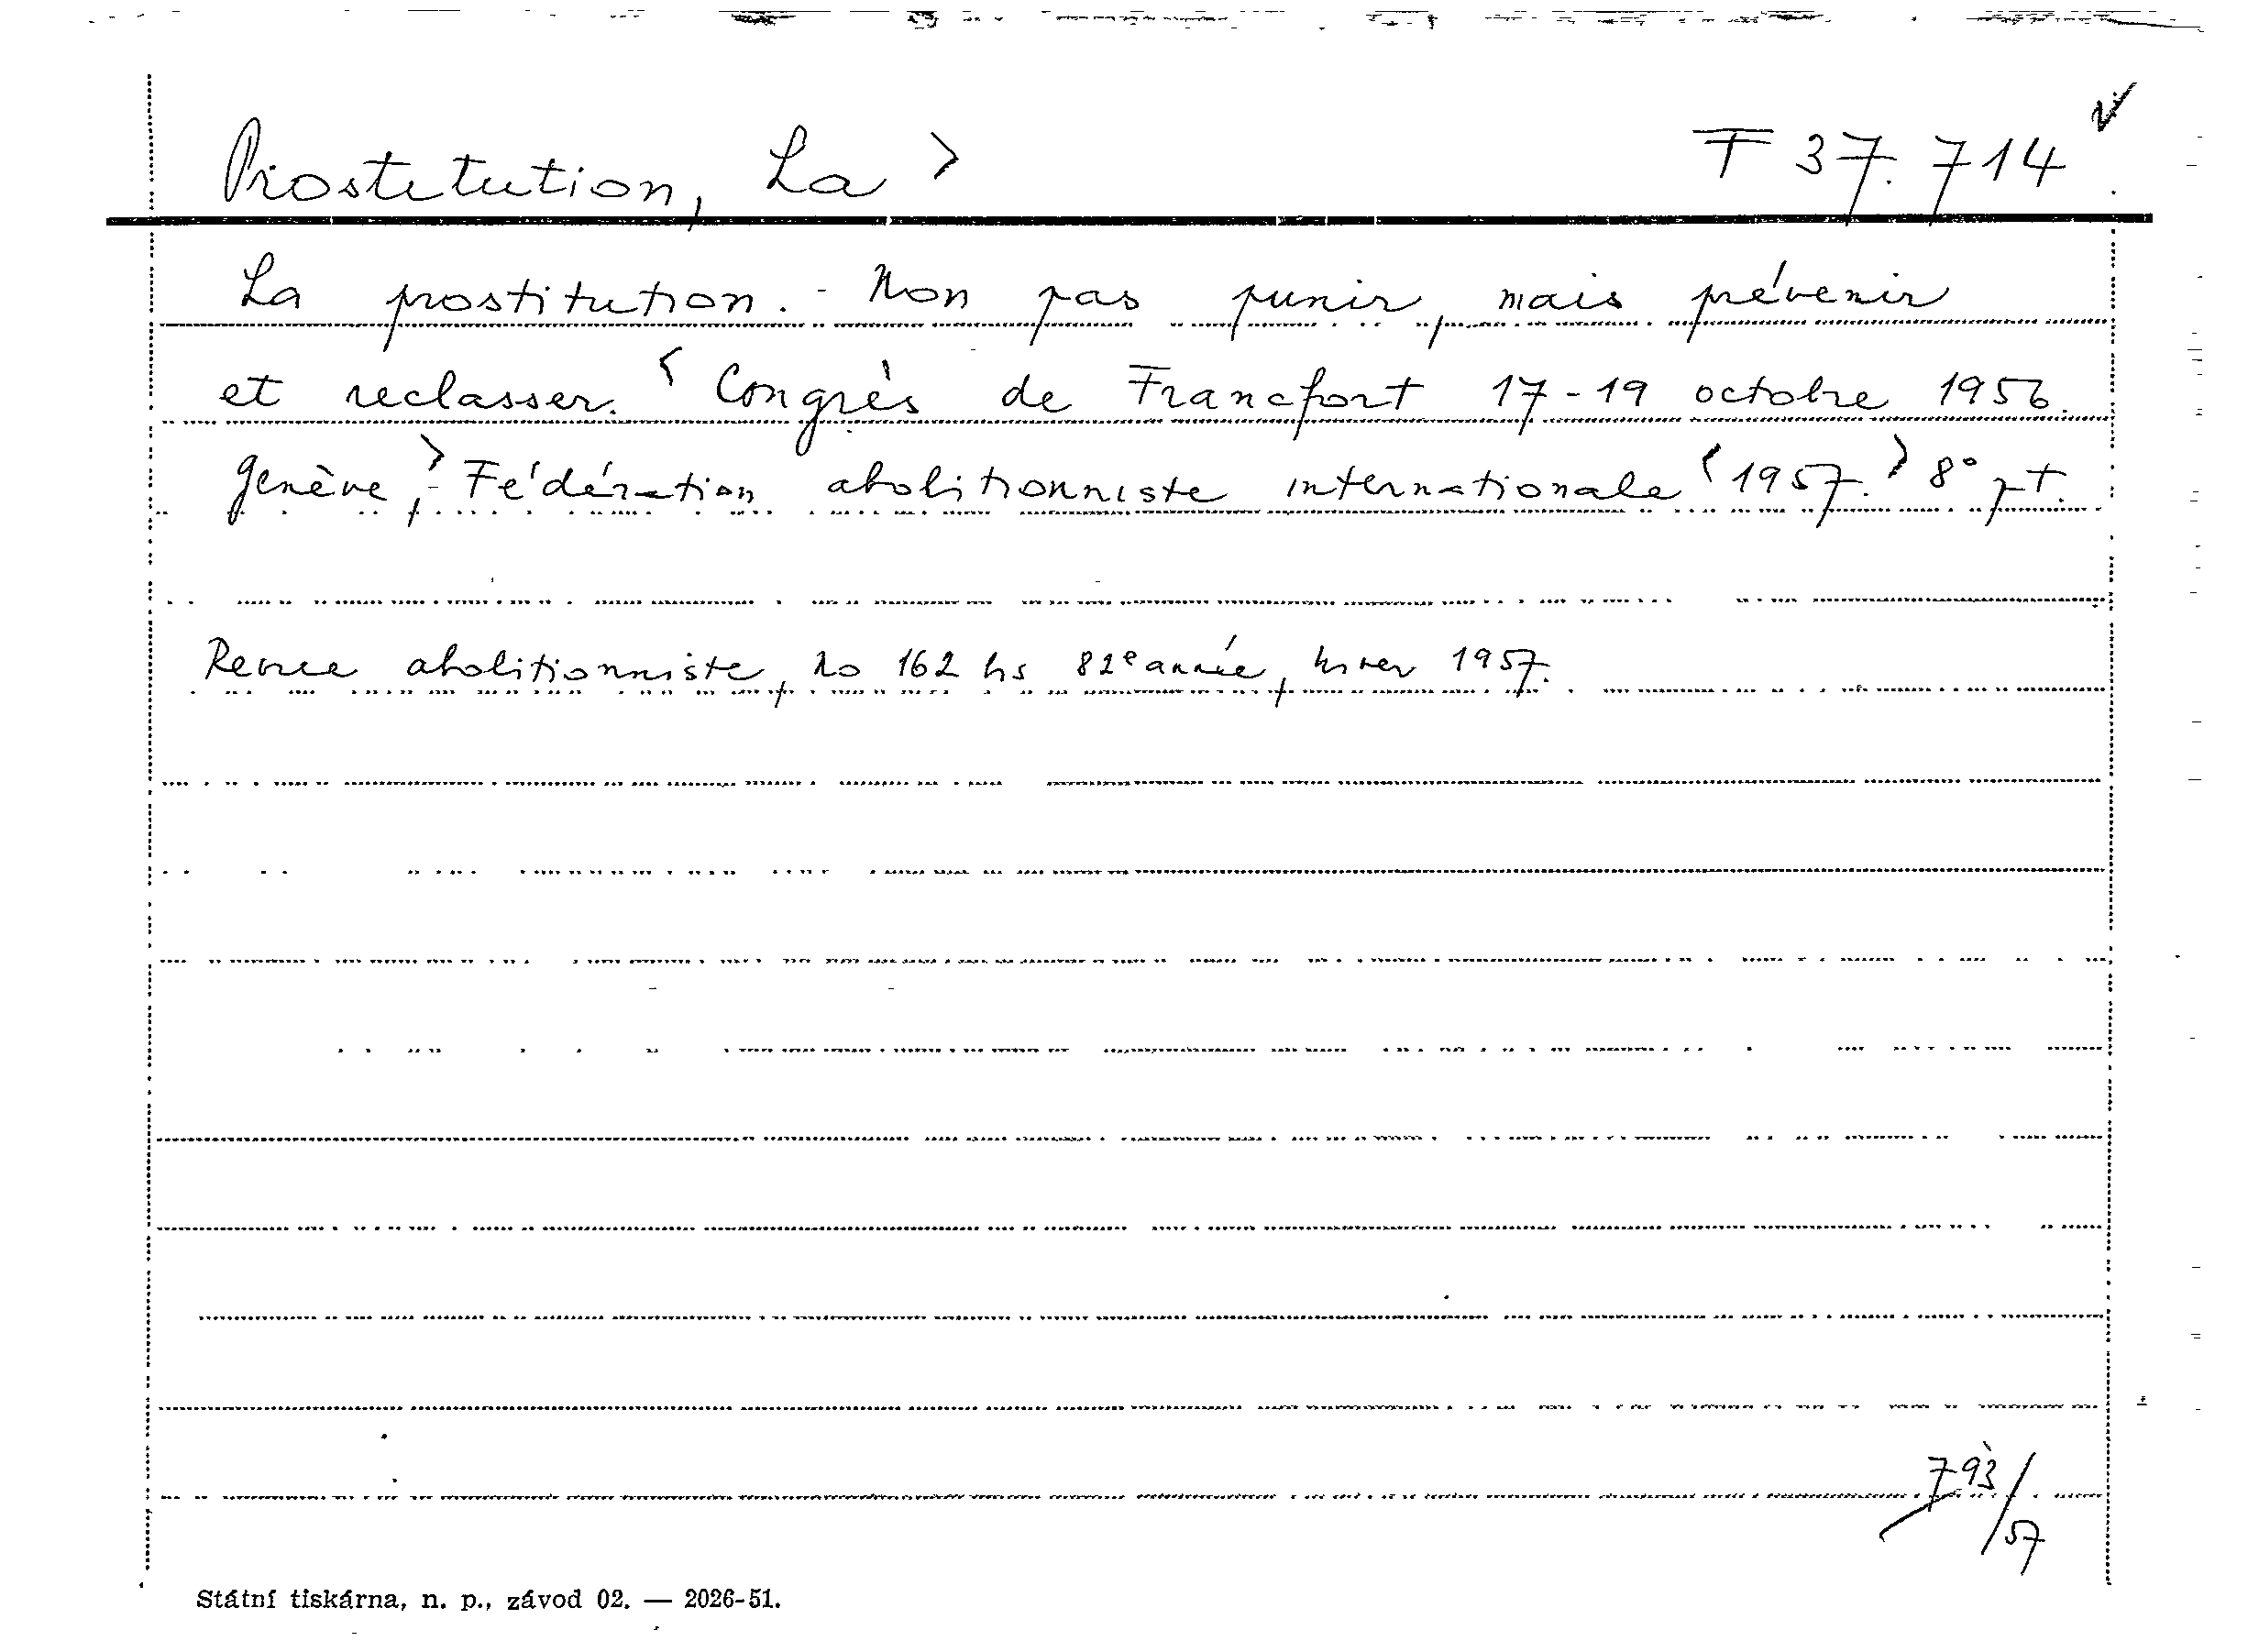 Prostitution, La > F 37.714
La prostitution. - Non pas punir, mais prévenir
et reclasser. < Congrès de Francfort 17-19 octobre 1956.
Genève, > - Fédération abolitionniste internationale < 1957. > 8° pt.
Revue abolitionniste, no 162 bs 82e année, hiver 1957.
793/57
Státní tiskárna, n. p., závod 02. — 2026-51.